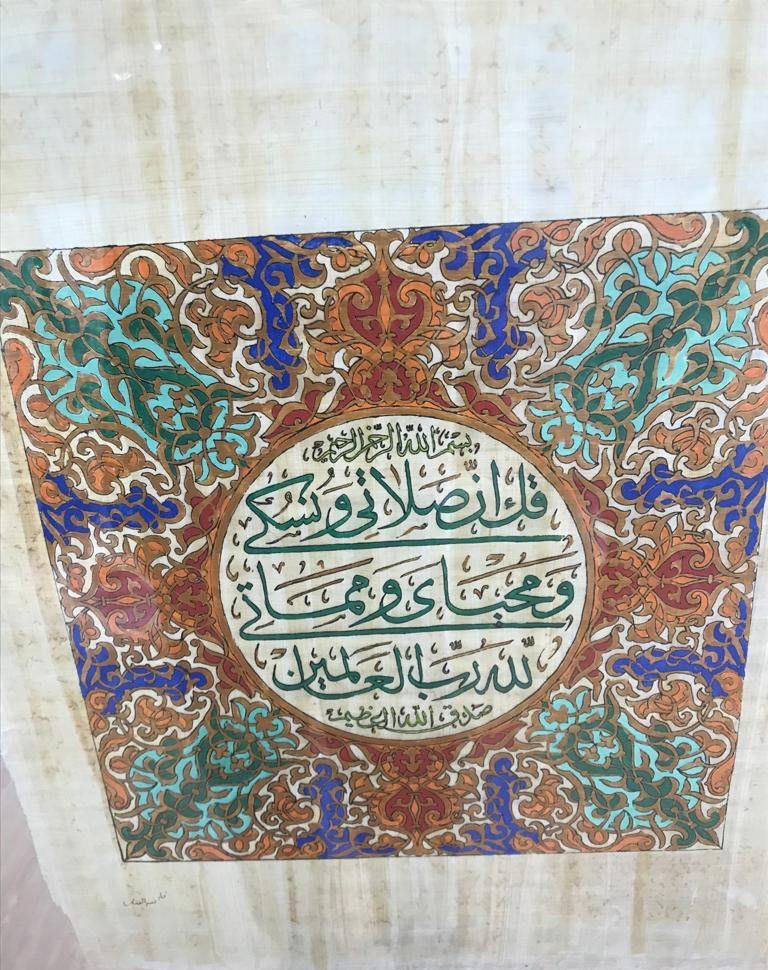 بسم الله الرحمن الرحيم
قل ان صلاتى ونسكى
ومحياى ومماتى
لله رب العالمين
صدق الله العظيم